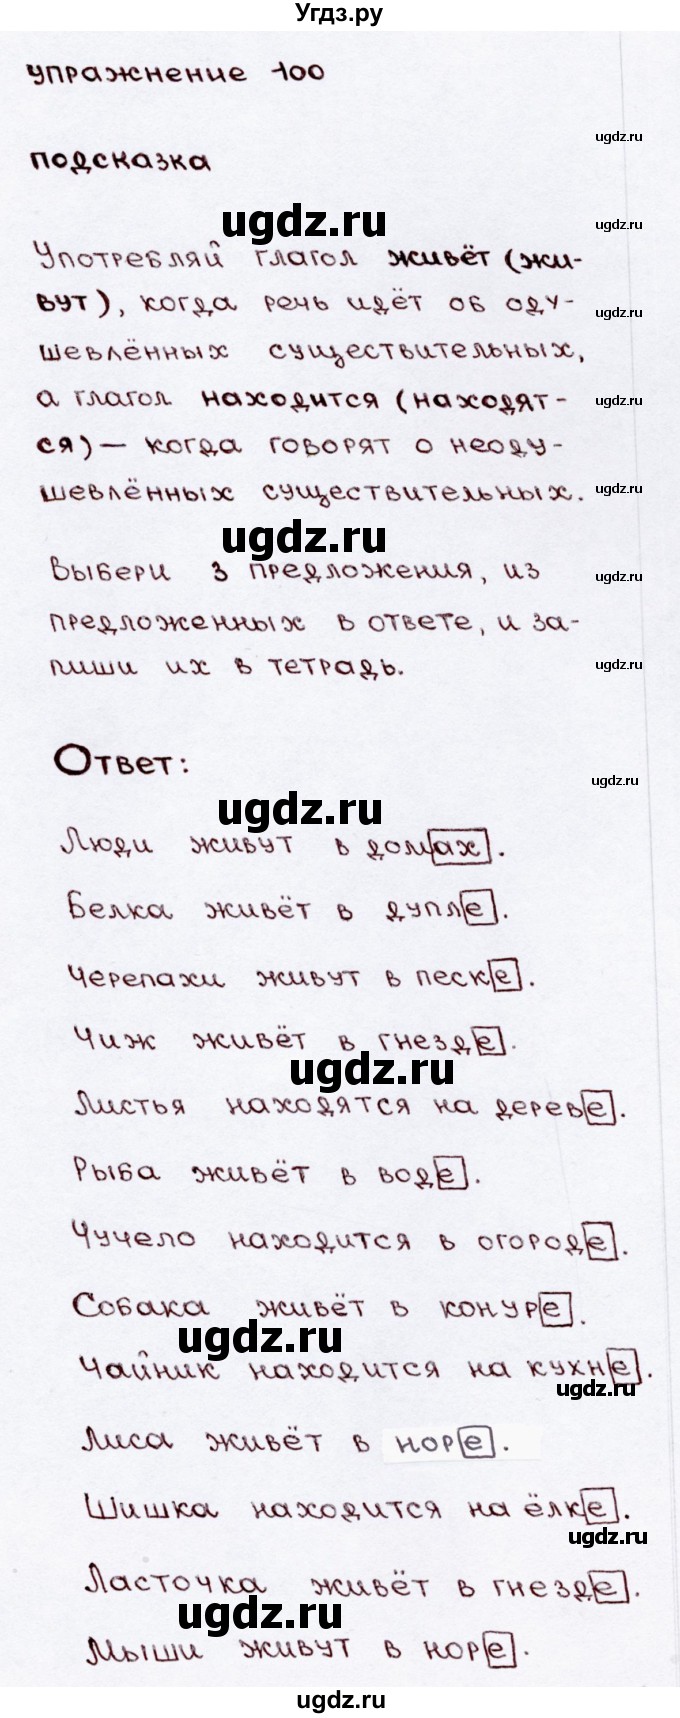 Угдз.ру
упражнение 100
подсказка
ugdz.ru
ugdz.ru
ugdz.ru
Употребляй глагол живёт (жи-
вут), когда речь идёт об оду-
ugdz.ru
шевлённых существительных,
а глагол находится (находят-
ugdz.ru
ся) – когда говорят о неоду-
шевлённых существительных.
ugdz.ru
ugdz.ru
Выбери 3 предложения, из
ugdz.ru
предложенных в ответе, и за-
пиши их в тетрадь.
ugdz.ru
Ответ:
ugdz.ru
ugdz.ru
Люди живут в домах.
Белка живёт в дупле.
Черепахи живут в песке.
Чиж живёт в гнезде.
ugdz.ru
Листья находятся на дереве.
Рыба живёт в воде.
Чучело находится в огороде.
Собака живёт в конуре.
ugdz.ru
Чайник находится на кухне.
ugdz.ru
Лиса живёт в норе.
Шишка находится на ёлке.
ugdz.ru
Ласточка живёт в гнезде.
ugdz.ru
Мыши живут в норе.
ugdz.ru